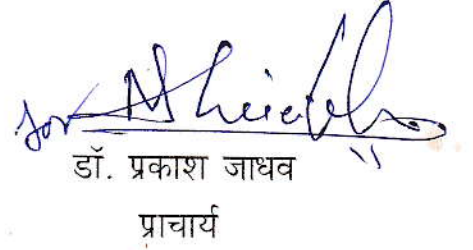 for
डॉ. प्रकाश जाधव
प्राचार्य